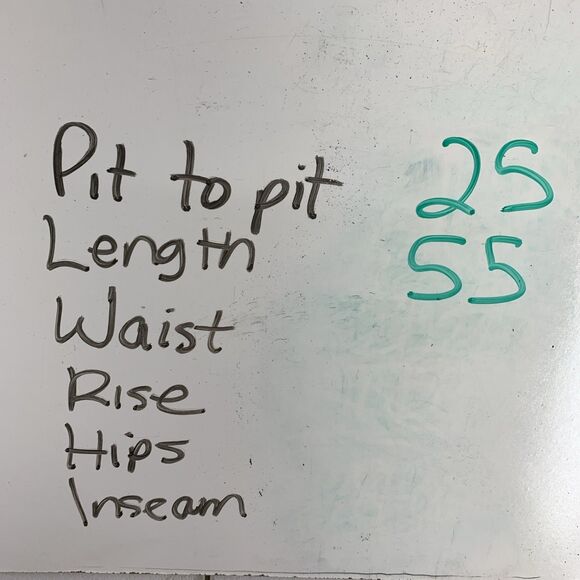 Pit to pit 25
Length 55
Waist
Rise
Hips
Inseam